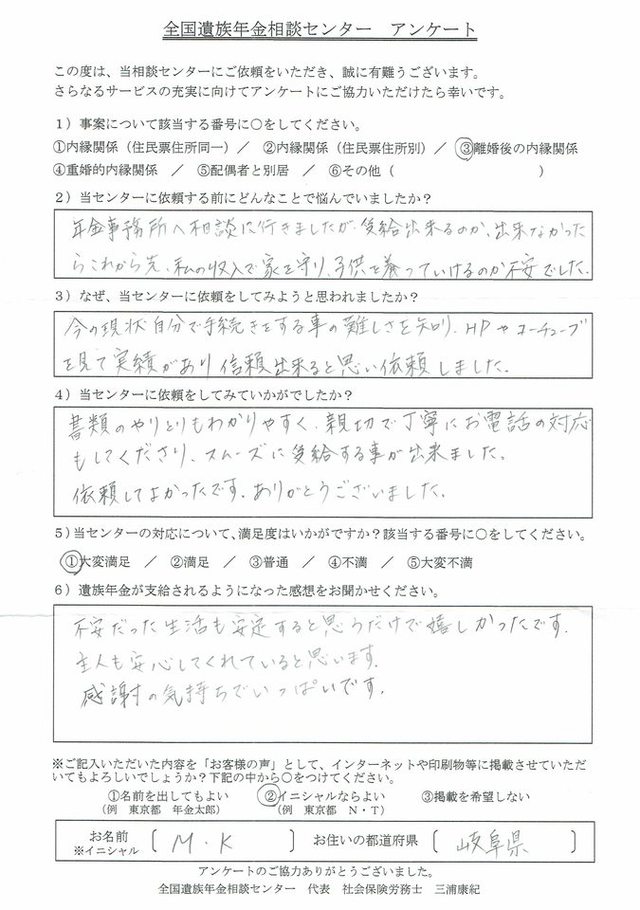 全国遺族年金相談センター　アンケート
この度は、当相談センターにご依頼をいただき、誠に有難うございます。
さらなるサービスの充実に向けてアンケートにご協力いただけたら幸いです。
1）事案について該当する番号に○をしてください。
①内縁関係（住民票住所同一）／　②内縁関係（住民票住所別）／　③離婚後の内縁関係
④重婚的内縁関係　／　⑤配偶者と別居　／　⑥その他（　　　　　　　　　　）
2）当センターに依頼する前にどんなことで悩んでいましたか？
年金事務所へ相談に行きましたが、受給出来るのか、出来なかった
らこれから先、私の収入で家を守り、子供を養っていけるのか不安でした。
3）なぜ、当センターに依頼をしてみようと思われましたか？
今の現状自分で手続きをする事の難しさを知り、HPやユーチューブ
を見て実績があり信頼出来ると思い依頼しました。
4）当センターに依頼をしてみていかがでしたか？
書類のやりとりもわかりやすく、親切で丁寧にお電話の対応
もしてくださり、スムーズに受給する事が出来ました。
依頼してよかったです。ありがとうございました。
5）当センターの対応について、満足度はいかがですか？該当する番号に○をしてください。
①大変満足　／　②満足　／　③普通　／　④不満　／　⑤大変不満
6）遺族年金が支給されるようになった感想をお聞かせください。
不安だった生活も安定すると思うだけで嬉しかったです。
主人も安心してくれていると思います。
感謝の気持ちでいっぱいです。
※ご記入いただいた内容を「お客様の声」として、インターネットや印刷物等に掲載させていただ
いてもよろしいでしょうか？下記の中から○をつけてください。
①名前を出してもよい　②イニシャルならよい　③掲載を希望しない
（例　東京都　年金太郎）　（例　東京都　N・T）
お名前
※イニシャル　〔　M・K　〕　お住いの都道府県　〔　岐阜県　〕
アンケートのご協力ありがとうございました。
全国遺族年金相談センター　代表　社会保険労務士　三浦康紀